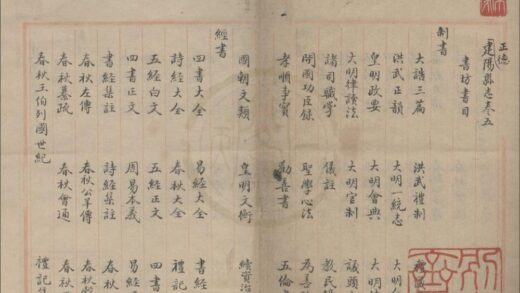 正德
建陽縣志卷五
書坊書目
制書
大誥三篇 洪武禮制
洪武正韻 大明一統志 大明
皇明政要 大明會典 大明
大明律讀法 大明官制 議頭
諸司職掌 儀註 教民
開國功臣錄 聖學心法 為善
孝順事實 勸善書 五倫
國朝文類 皇明文衡 續資治
經書
四書大全 易經大全 書經
詩經大全 春秋大全 禮記
五經白文 五經正文 四書
四書正文 周易本義 易經
書經集註 詩經集註 春秋
春秋左傳 春秋公羊傳 春秋
春秋纂疏 春秋會通 春秋
春秋王伯列國世紀 禮記集